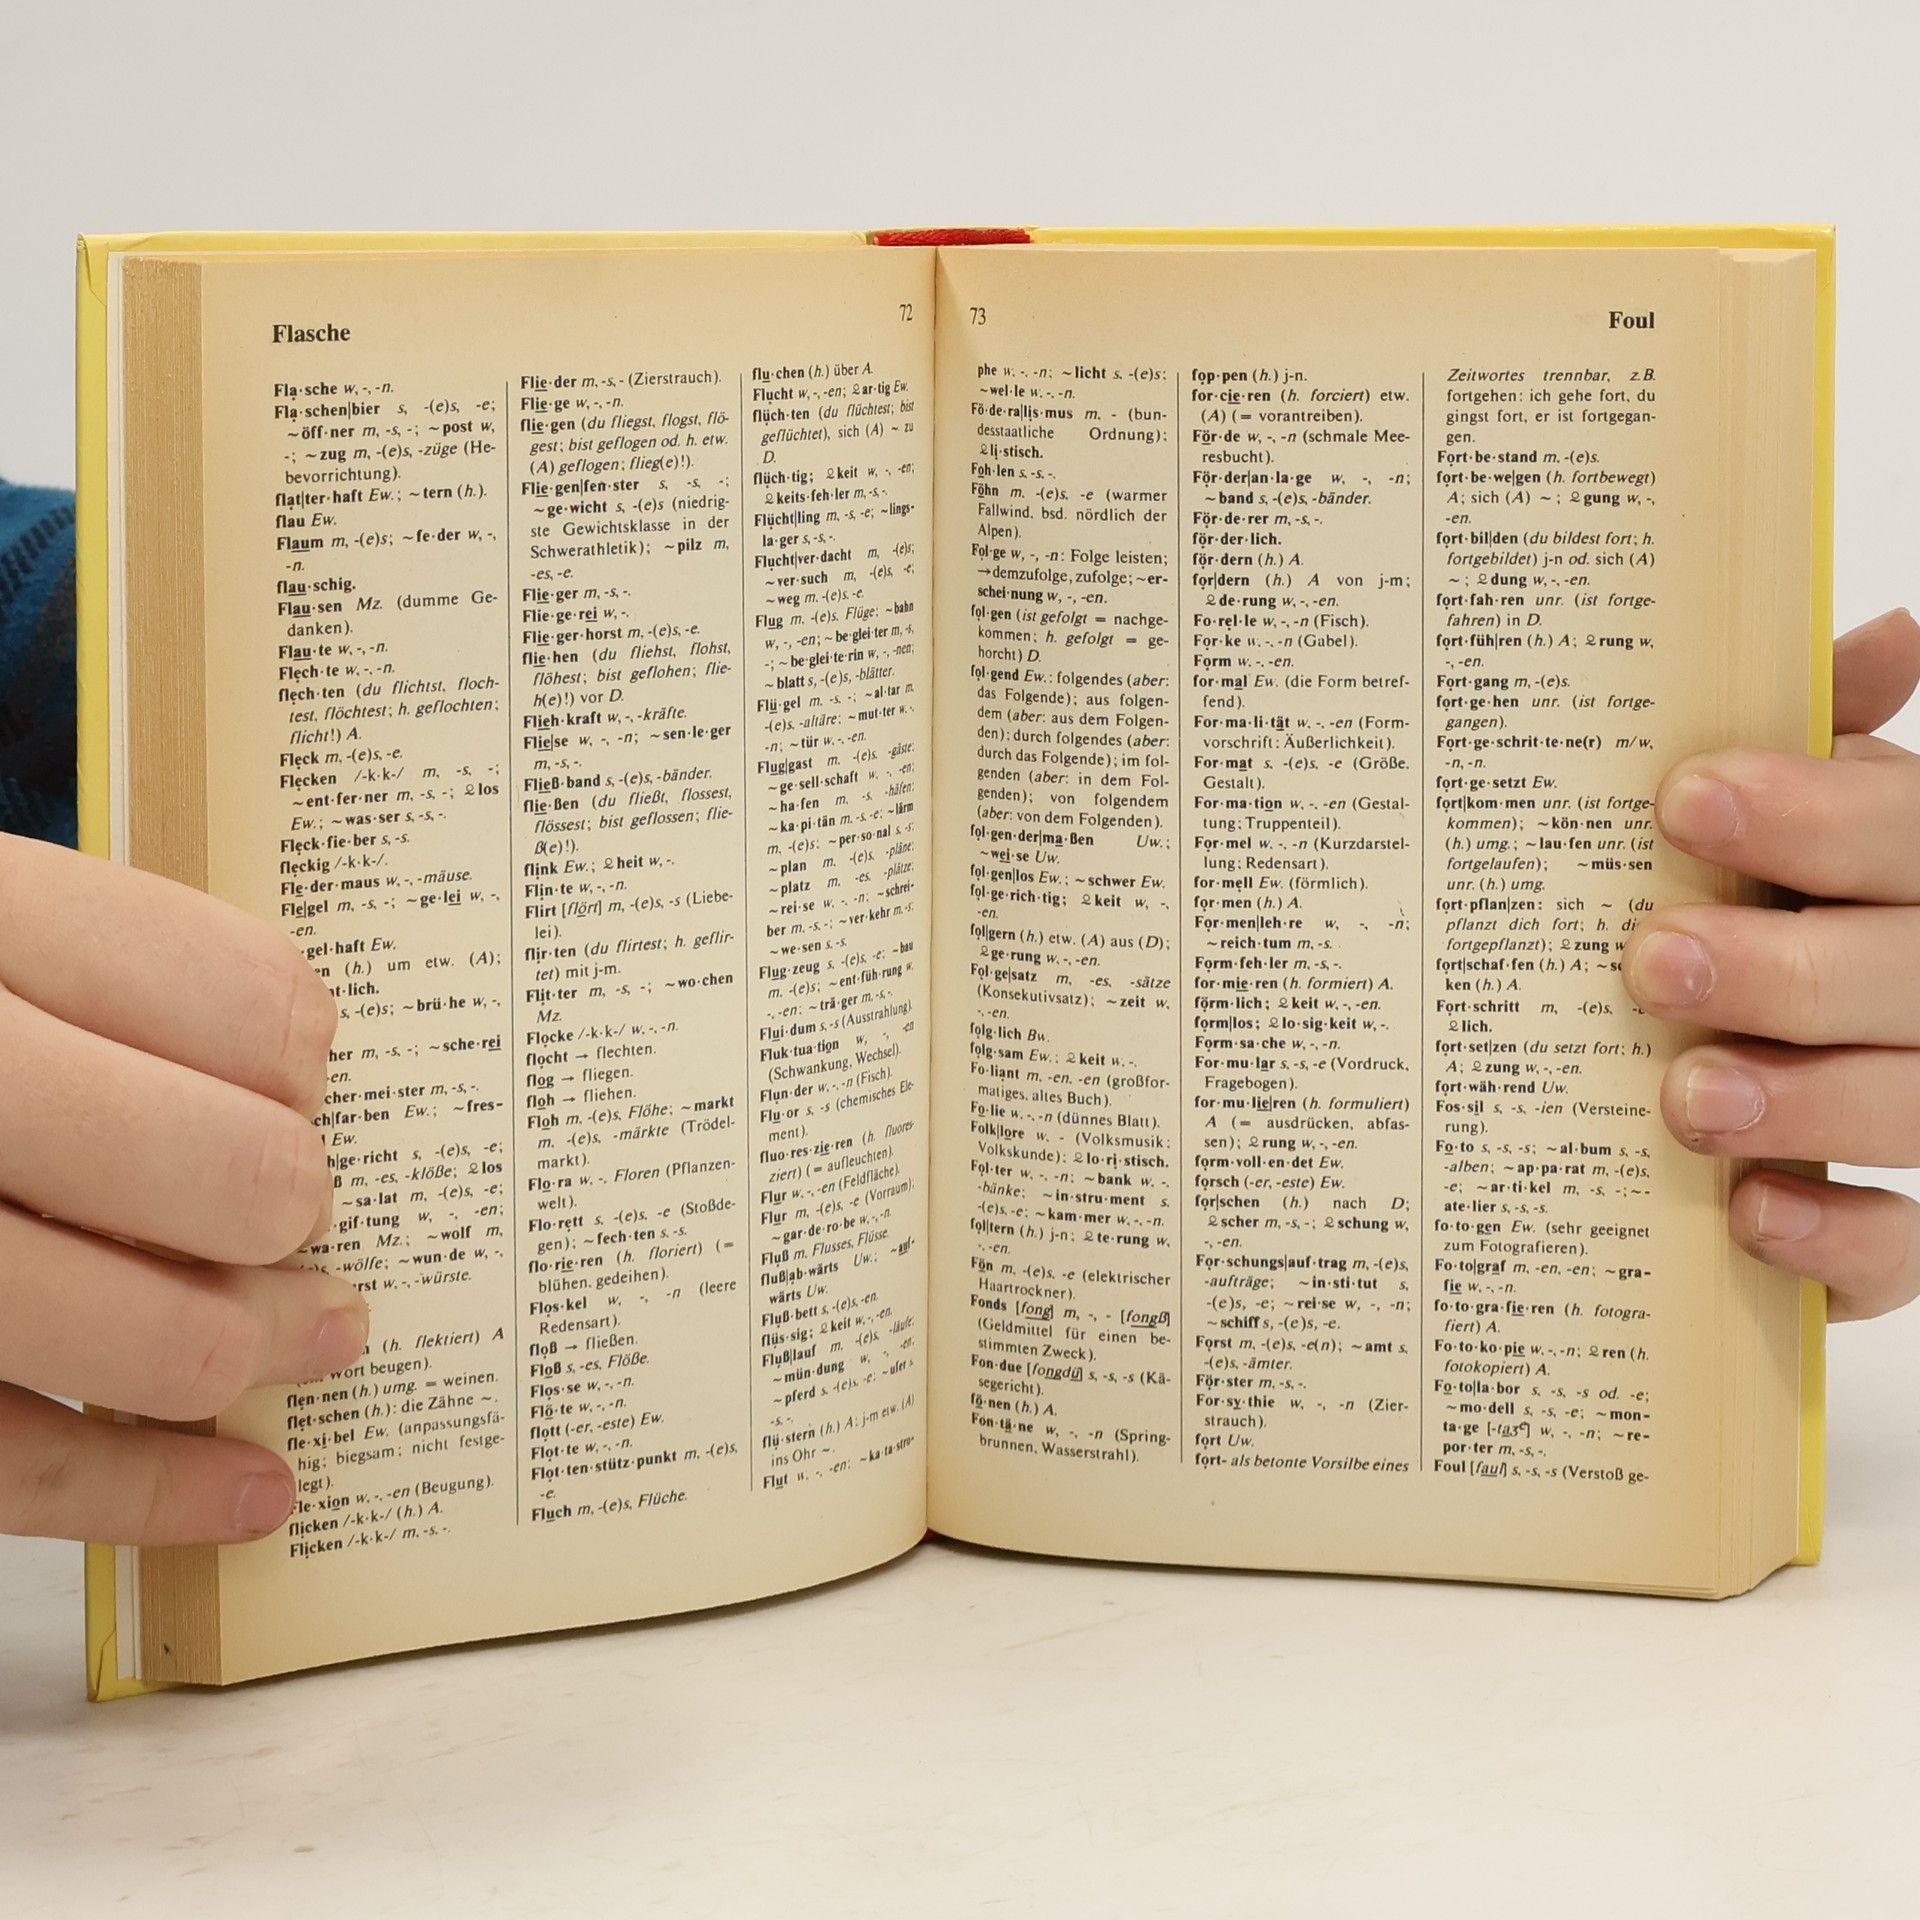 Flasche
72
Fla·sche w, -, -n.
Fla·schen|bier s, -(e)s, -e;
~öff·ner m, -s, -; ~post w,
-; ~zug m, -(e)s, -züge (He-
bevorrichtung).
flat|ter·haft Ew.; ~tern (h.).
flau Ew.
Flaum m, -(e)s; ~fe·der w, -,
-n.
flau·schig.
Flau·sen Mz. (dumme Ge-
danken).
Flau·te w, -, -n.
Flech·te w, -, -n.
flech·ten (du flichtst, floch-
test, flöchtest; h. geflochten;
flicht!) A.
Fleck m, -(e)s, -e.
Flecken /-k·k-/ m, -s, -;
~ent·fer·ner m, -s, -; 2los
Ew.; ~was·ser s, -s, -.
Fleck·fie·ber s, -s.
fleckig /-k·k-/.
Fle·der·maus w, -, -mäuse.
Fle|gel m, -s, -; ~ge·lei w, -,
-en.
gel·haft Ew.
(h.) um etw. (A);
lich.
s, -(e)s; ~brü·he w, -,
her m, -s, -; ~sche·rei
-en.
cher·mei·ster m, -s, -.
ch|far·ben Ew.; ~fres-
Ew.
h|ge·richt s, -(e)s, -e;
m, -es, -klöße; 2los
~sa·lat m, -(e)s, -e;
gif·tung w, -, -en;
~wa·ren Mz.; ~wolf m,
-wölfe; ~wun·de w, -,
w, -, -würste.
(h. flektiert) A
Wort beugen).
flen·nen (h.) umg. = weinen.
flet·schen (h.): die Zähne ~.
fle·xi·bel Ew. (anpassungsfä-
hig; biegsam; nicht festge-
legt).
le·xion w, -, -en (Beugung).
flicken /-k·k-/ (h.) A.
Flicken /-k·k-/ m, -s, -.
Flie·der m, -s, - (Zierstrauch).
Flie·ge w, -, -n.
flie·gen (du fliegst, flogst, flö-
gest; bist geflogen od. h. etw.
(A) geflogen; flieg(e)!).
Flie·gen|fen·ster s, -s, -;
~ge·wicht s, -(e)s (niedrig-
ste Gewichtsklasse in der
Schwerathletik); ~pilz m,
-es, -e.
Flie·ger m, -s, -.
Flie·ge·rei w, -.
Flie·ger·horst m, -(e)s, -e.
flie·hen (du fliehst, flohst,
flöhest; bist geflohen; flie-
h(e)!) vor D.
Flieh·kraft w, -, -kräfte.
Flie|se w, -, -n; ~sen·le·ger
m, -s, -.
Fließ·band s, -(e)s, -bänder.
flie·ßen (du fließt, flossest,
flössest; bist geflossen; flie-
ß(e)!).
flink Ew.; 2heit w, -.
Flin·te w, -, -n.
Flirt [flört] m, -(e)s, -s (Liebe-
lei).
flir·ten (du flirtest; h. geflir-
tet) mit j-m.
Flit·ter m, -s, -; ~wo·chen
Mz.
Flocke /-k·k-/ w, -, -n.
flocht → flechten.
flog → fliegen.
floh → fliehen.
Floh m, -(e)s, Flöhe; ~markt
m, -(e)s, -märkte (Trödel-
markt).
Flo·ra w, -, Floren (Pflanzen-
welt).
Flo·rett s, -(e)s, -e (Stoßde-
gen); ~fech·ten s, -s.
flo·rie·ren (h. floriert) (=
blühen, gedeihen).
Flos·kel w, -, -n (leere
Redensart).
floß → fließen.
Floß s, -es, Flöße.
Flos·se w, -, -n.
Flö·te w, -, -n.
flott (-er, -este) Ew.
Flot·te w, -, -n.
Flot·ten·stütz·punkt m, -(e)s,
-e.
Fluch m, -(e)s, Flüche.
flu·chen (h.) über A.
Flucht w, -, -en; 2ar·tig Ew.
flüch·ten (du flüchtest; bist
geflüchtet), sich (A) ~ zu
D.
flüch·tig; 2keit w, -, -en;
2keits·feh·ler m, -s, -.
Flücht|ling m, -s, -e; ~lings-
la·ger s, -s, -.
Flucht|ver·dacht m, -(e)s;
~ver·such m, -(e)s, -e;
~weg m, -(e)s, -e.
Flug m, -(e)s, Flüge; ~bahn
w, -, -en; ~be·glei·ter m, -s,
-; ~be·glei·te·rin w, -, -nen;
~blatt s, -(e)s, -blätter.
Flü·gel m, -s, -; ~al·tar m,
-(e)s, -altäre; ~mut·ter w, -,
-n; ~tür w, -, -en.
Flug|gast m, -(e)s, -gäste;
~ge·sell·schaft w, -, -en;
~ha·fen m, -s, -häfen;
~ka·pi·tän m, -s, -e; ~lärm
m, -(e)s; ~per·so·nal s, -s;
~plan m, -(e)s, -pläne;
~platz m, -es, -plätze;
~rei·se w, -, -n; ~schrei-
ber m, -s, -; ~ver·kehr m, -s;
~we·sen s, -s.
Flug·zeug s, -(e)s, -e; ~bau
m, -(e)s; ~ent·füh·rung w,
-, -en; ~trä·ger m, -s, -.
Flui·dum s, -s (Ausstrahlung).
Fluk·tua·tion w, -, -en
(Schwankung, Wechsel).
Flun·der w, -, -n (Fisch).
Flu·or s, -s (chemisches Ele-
ment).
fluo·res·zie·ren (h. fluores-
ziert) (= aufleuchten).
Flur w, -, -en (Feldfläche).
Flur m, -(e)s, -e (Vorraum);
~gar·de·ro·be w, -, -n.
Fluß m, Flusses, Flüsse.
fluß|ab·wärts Uw.; ~auf-
wärts Uw.
Fluß·bett s, -(e)s, -en.
flüs·sig; 2keit w, -, -en.
Fluß|lauf m, -(e)s, -läufe;
~mün·dung w, -, -en;
~pferd s, -(e)s, -e; ~ufer s,
-s, -.
flü·stern (h.) A; j-m etw. (A)
ins Ohr ~.
Flut w, -, -en; ~ka·ta·stro-
73
Foul
phe w, -, -n; ~licht s, -(e)s;
~wel·le w, -, -n.
Fö·de·ra|lis·mus m, - (bun-
desstaatliche Ordnung);
2li·stisch.
Foh·len s, -s, -.
Föhn m, -(e)s, -e (warmer
Fallwind, bsd. nördlich der
Alpen).
Fol·ge w, -, -n: Folge leisten;
→demzufolge, zufolge; ~er-
schei·nung w, -, -en.
fol·gen (ist gefolgt = nachge-
kommen; h. gefolgt = ge-
horcht) D.
fol·gend Ew.: folgendes (aber:
das Folgende); aus folgen-
dem (aber: aus dem Folgen-
den); durch folgendes (aber:
durch das Folgende); im fol-
genden (aber: in dem Fol-
genden); von folgendem
(aber: von dem Folgenden).
fol·gen·der|ma·ßen Uw.;
~wei·se Uw.
fol·gen|los Ew.; ~schwer Ew.
fol·ge·rich·tig; 2keit w, -,
-en.
fol|gern (h.) etw. (A) aus (D);
2ge·rung w, -, -en.
Fol·ge|satz m, -es, -sätze
(Konsekutivsatz); ~zeit w,
-, -en.
folg·lich Bw.
folg·sam Ew.; 2keit w, -.
Fo·liant m, -en, -en (großfor-
matiges, altes Buch).
Fo·lie w, -, -n (dünnes Blatt).
Folk|lore w, - (Volksmusik;
Volkskunde); 2lo·ri·stisch.
Fol·ter w, -, -n; ~bank w, -,
-bänke; ~in·stru·ment s,
-(e)s, -e; ~kam·mer w, -, -n.
fol|tern (h.) j-n; 2te·rung w,
-, -en.
Fön m, -(e)s, -e (elektrischer
Haartrockner).
Fonds [fong] m, -, - [fongß]
(Geldmittel für einen be-
stimmten Zweck).
Fon·due [fongdü] s, -s, -s (Kä-
segericht).
fö·nen (h.) A.
Fon·tä·ne w, -, -n (Spring-
brunnen, Wasserstrahl).
fop·pen (h.) j-n.
for·cie·ren (h. forciert) etw.
(A) (= vorantreiben).
För·de w, -, -n (schmale Mee-
resbucht).
För·der|an·la·ge w, -, -n;
~band s, -(e)s, -bänder.
För·de·rer m, -s, -.
för·der·lich.
för·dern (h.) A.
for|dern (h.) A von j-m;
2de·rung w, -, -en.
Fo·rel·le w, -, -n (Fisch).
For·ke w, -, -n (Gabel).
Form w, -, -en.
for·mal Ew. (die Form betref-
fend).
For·ma·li·tät w, -, -en (Form-
vorschrift; Äußerlichkeit).
For·mat s, -(e)s, -e (Größe,
Gestalt).
For·ma·tion w, -, -en (Gestal-
tung; Truppenteil).
For·mel w, -, -n (Kurzdarstel-
lung; Redensart).
for·mell Ew. (förmlich).
for·men (h.) A.
For·men|leh·re w, -, -n;
~reich·tum m, -s.
Form·feh·ler m, -s, -.
for·mie·ren (h. formiert) A.
förm·lich; 2keit w, -, -en.
form|los; 2lo·sig·keit w, -.
Form·sa·che w, -, -n.
For·mu·lar s, -s, -e (Vordruck,
Fragebogen).
for·mu·lie|ren (h. formuliert)
A (= ausdrücken, abfas-
sen); 2rung w, -, -en.
form·voll·en·det Ew.
forsch (-er, -este) Ew.
for|schen (h.) nach D;
2scher m, -s, -; 2schung w,
-, -en.
For·schungs|auf·trag m, -(e)s,
-aufträge; ~in·sti·tut s,
-(e)s, -e; ~rei·se w, -, -n;
~schiff s, -(e)s, -e.
Forst m, -(e)s, -e(n); ~amt s,
-(e)s, -ämter.
För·ster m, -s, -.
For·sy·thie w, -, -n (Zier-
strauch).
fort Uw.
fort- als betonte Vorsilbe eines
Zeitwortes trennbar, z.B.
fortgehen: ich gehe fort, du
gingst fort, er ist fortgegan-
gen.
Fort·be·stand m, -(e)s.
fort·be·we|gen (h. fortbewegt)
A; sich (A) ~; 2gung w, -,
-en.
fort·bil|den (du bildest fort; h.
fortgebildet) j-n od. sich (A)
~; 2dung w, -, -en.
fort·fah·ren unr. (ist fortge-
fahren) in D.
fort·füh|ren (h.) A; 2rung w,
-, -en.
Fort·gang m, -(e)s.
fort·ge·hen unr. (ist fortge-
gangen).
Fort·ge·schrit·te·ne(r) m/w,
-n, -n.
fort·ge·setzt Ew.
fort|kom·men unr. (ist fortge-
kommen); ~kön·nen unr.
(h.) umg.; ~lau·fen unr. (ist
fortgelaufen); ~müs·sen
unr. (h.) umg.
fort·pflan|zen: sich ~ (du
pflanzt dich fort; h.
fortgepflanzt); 2zung
fort|schaf·fen (h.) A;
ken (h.) A.
Fort·schritt m, -(e)s,
2lich.
fort·set|zen (du setzt fort; h.)
A; 2zung w, -, -en.
fort·wäh·rend Uw.
Fos·sil s, -s, -ien (Versteine-
rung).
Fo·to s, -s, -s; ~al·bum s, -s,
-alben; ~ap·pa·rat m, -(e)s,
-e; ~ar·ti·kel m, -s, -; ~-
ate·lier s, -s, -s.
fo·to·gen Ew. (sehr geeignet
zum Fotografieren).
Fo·to|graf m, -en, -en; ~gra-
fie w, -, -n.
fo·to·gra·fie·ren (h. fotogra-
fiert) A.
Fo·to·ko·pie w, -, -n; 2ren (h.
fotokopiert) A.
Fo·to|la·bor s, -s, -s od. -e;
~mo·dell s, -s, -e; ~mon-
ta·ge [-taʒe] w, -, -n; ~re-
por·ter m, -s, -.
Foul [faul] s, -s, -s (Verstoß ge-